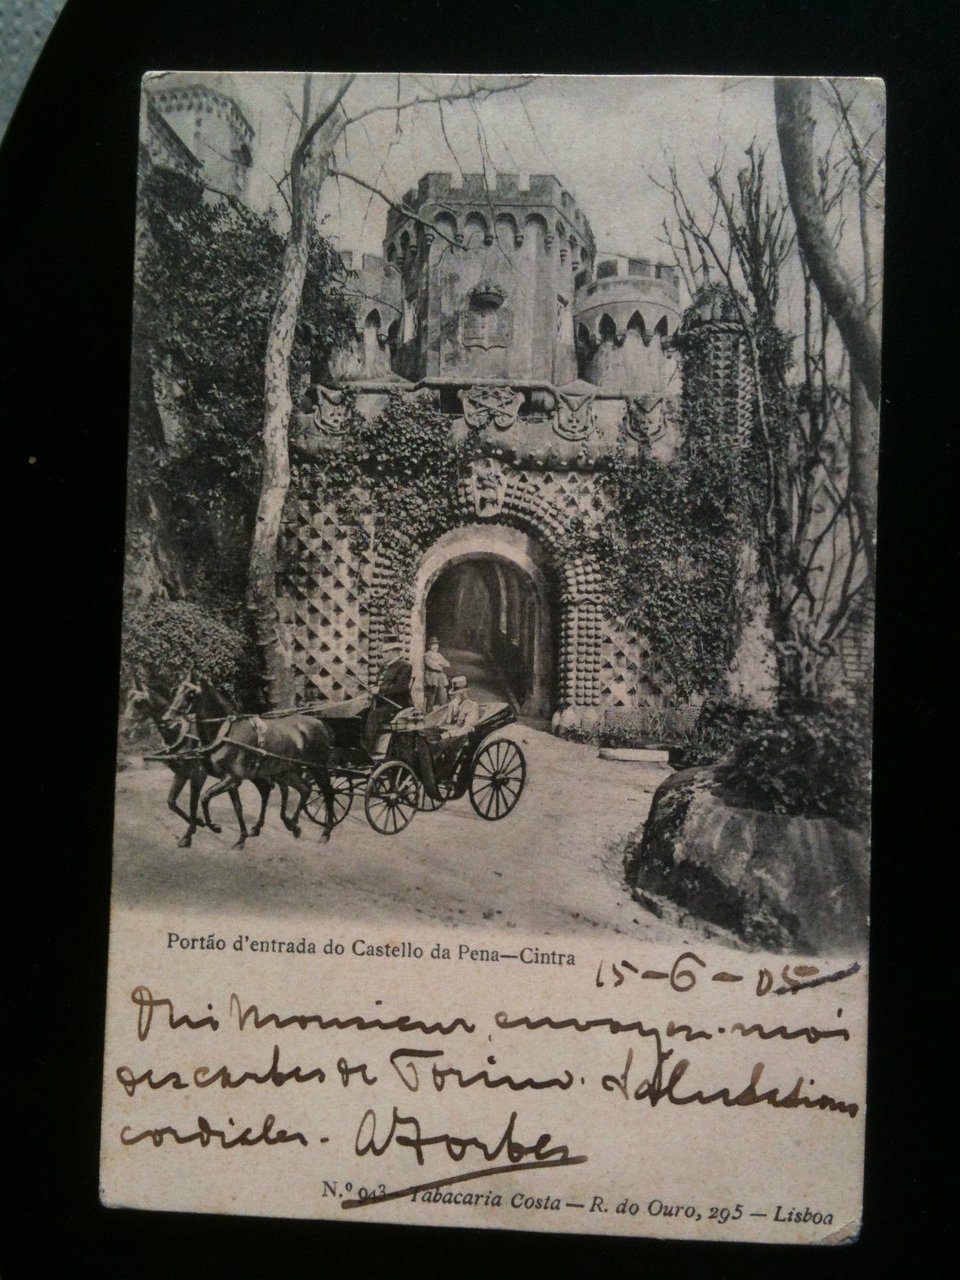 Portão d'entrada do Castello da Pena—Cintra
15-6-05
Oui Monsieur, envoyez-moi
des cartes de Torino. Salutations
cordiales. A Forbes
N.º 943 Tabacaria Costa — R. do Ouro, 295 — Lisboa